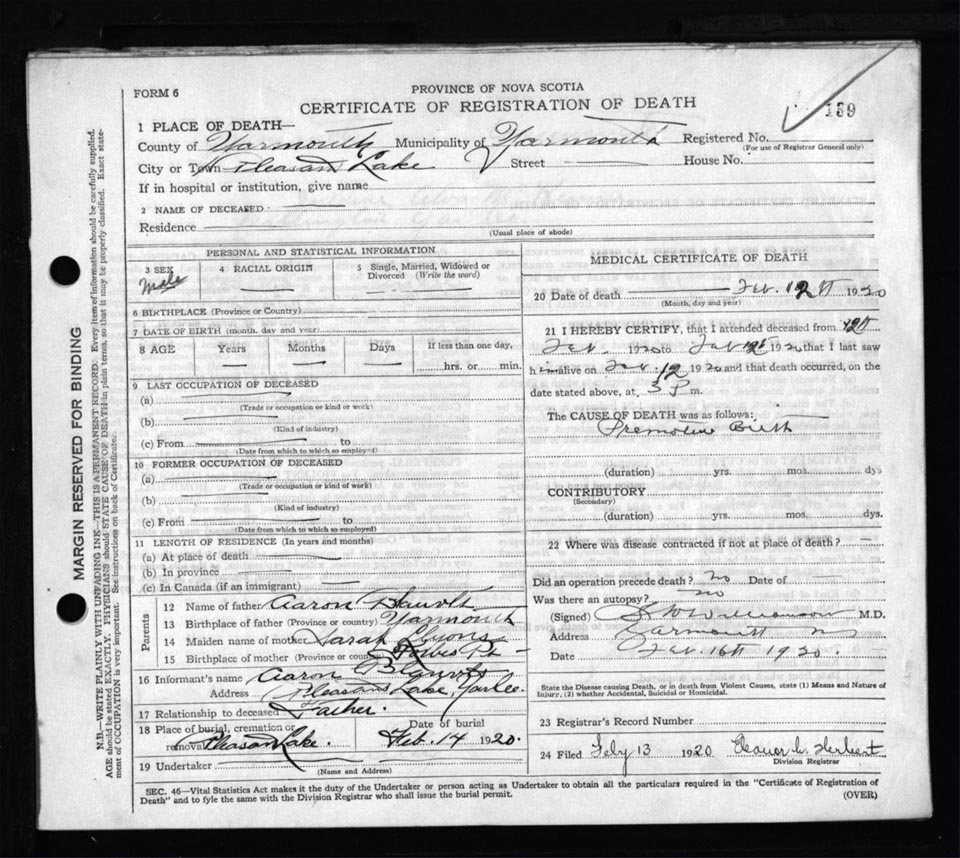 FORM 6
PROVINCE OF NOVA SCOTIA
CERTIFICATE OF REGISTRATION OF DEATH
139
1 PLACE OF DEATH—
County of Yarmouth Municipality of Yarmouth Registered No.
(For use of Registrar General only)
City or Town Pleasant Lake Street House No.
If in hospital or institution, give name
2 NAME OF DECEASED
Residence
(Usual place of abode)
PERSONAL AND STATISTICAL INFORMATION
3 SEX Male
4 RACIAL ORIGIN
5 Single, Married, Widowed or Divorced (Write the word)
6 BIRTHPLACE (Province or Country)
7 DATE OF BIRTH (month, day and year)
8 AGE Years Months Days If less than one day,
hrs. or min.
9 LAST OCCUPATION OF DECEASED
(a)
(Trade or occupation or kind or work)
(b)
(Kind of industry)
(c) From to
(Date from which to which so employed)
10 FORMER OCCUPATION OF DECEASED
(a)
(Trade or occupation or kind of work)
(b)
(Kind of industry)
(c) From to
(Date from which to which so employed)
11 LENGTH OF RESIDENCE (In years and months)
(a) At place of death
(b) In province
(c) In Canada (if an immigrant)
Parents
12 Name of father Aaron
13 Birthplace of father (Province or country) Yarmouth
14 Maiden name of mother Sarah Lyons
15 Birthplace of mother (Province or country) Forbes Pt
16 Informant's name Aaron
Address Pleasant Lake, Yar Co.
17 Relationship to deceased Father.
18 Place of burial, cremation or removal Pleasant Lake. Date of burial Feb. 14 1920.
19 Undertaker
(Name and Address)
MEDICAL CERTIFICATE OF DEATH
20 Date of death Feb. 12th 1920
(Month, day and year)
21 I HEREBY CERTIFY, that I attended deceased from 12th
Feb. 1920 to Feb 12th 1920 that I last saw
him alive on Feb. 12 1920 and that death occurred, on the
date stated above, at 3 P m.
The CAUSE OF DEATH was as follows:
Premature Birth
(duration) yrs. mos. dys
CONTRIBUTORY
(Secondary)
(duration) yrs. mos. dys.
22 Where was disease contracted if not at place of death?
Did an operation precede death? no Date of
Was there an autopsy? no
(Signed) Williamson M.D.
Address Yarmouth N
Date Feb. 16th 1920.
State the Disease causing Death, or in death from Violent Causes, state (1) Means and Nature of
Injury, (2) whether Accidental, Suicidal or Homicidal.
23 Registrar's Record Number
24 Filed Feby 13 1920 Eleanor L. Herbert
Division Registrar
SEC. 46—Vital Statistics Act makes it the duty of the Undertaker or person acting as Undertaker to obtain all the particulars required in the "Certificate of Registration of
Death" and to fyle the same with the Division Registrar who shall issue the burial permit.
(OVER)
MARGIN RESERVED FOR BINDING
N.B.—WRITE PLAINLY WITH UNFADING INK—THIS IS A PERMANENT RECORD. Every item of information should be carefully supplied.
AGE should be stated EXACTLY. PHYSICIANS should STATE CAUSE OF DEATH in plain terms, so that it may be properly classified. Exact state-
ment of OCCUPATION is very important. See instructions on back of Certificate.